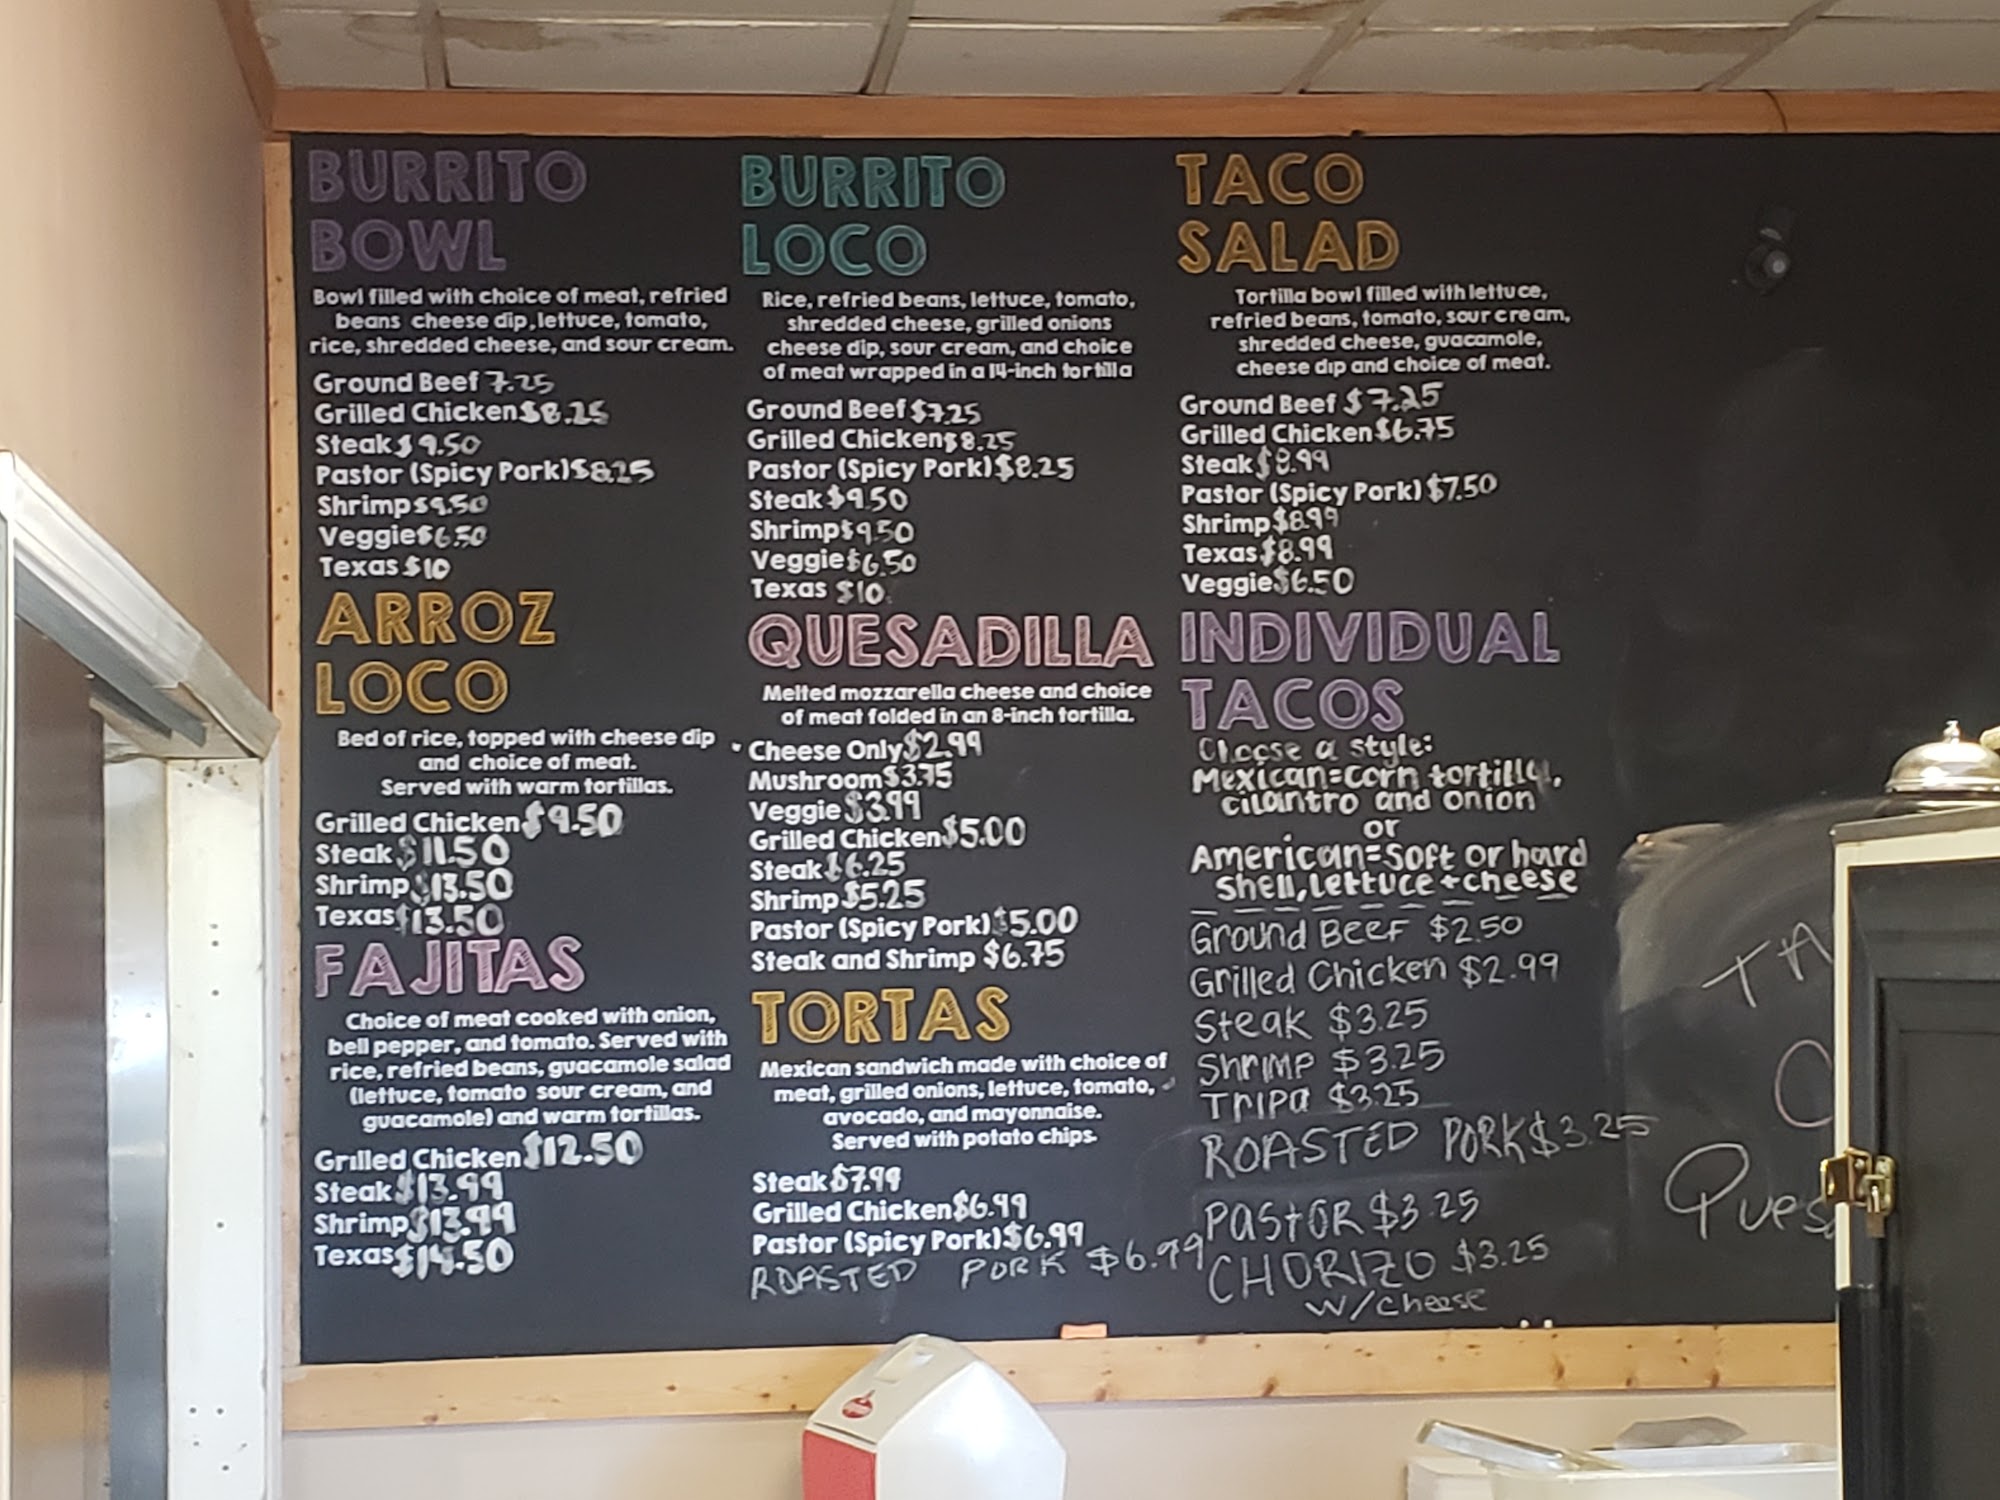 BURRITO
BOWL
Bowl filled with choice of meat, refried
beans cheese dip, lettuce, tomato,
rice, shredded cheese, and sour cream.
Ground Beef 7.25
Grilled Chicken $8.25
Steak $9.50
Pastor (Spicy Pork) $8.25
Shrimp $9.50
Veggie $6.50
Texas $10
ARROZ
LOCO
Bed of rice, topped with cheese dip
and choice of meat.
Served with warm tortillas.
Grilled Chicken $9.50
Steak $11.50
Shrimp $13.50
Texas $13.50
FAJITAS
Choice of meat cooked with onion,
bell pepper, and tomato. Served with
rice, refried beans, guacamole salad
(lettuce, tomato sour cream, and
guacamole) and warm tortillas.
Grilled Chicken $12.50
Steak $13.99
Shrimp $13.99
Texas $14.50
BURRITO
LOCO
Rice, refried beans, lettuce, tomato,
shredded cheese, grilled onions
cheese dip, sour cream, and choice
of meat wrapped in a 14-inch tortilla
Ground Beef $7.25
Grilled Chicken $8.25
Pastor (Spicy Pork) $8.25
Steak $9.50
Shrimp $9.50
Veggie $6.50
Texas $10
QUESADILLA
Melted mozzarella cheese and choice
of meat folded in an 8-inch tortilla.
Cheese Only $2.99
Mushroom $3.75
Veggie $3.99
Grilled Chicken $5.00
Steak $6.25
Shrimp $5.25
Pastor (Spicy Pork) $5.00
Steak and Shrimp $6.75
TORTAS
Mexican sandwich made with choice of
meat, grilled onions, lettuce, tomato,
avocado, and mayonnaise.
Served with potato chips.
Steak $7.99
Grilled Chicken $6.99
Pastor (Spicy Pork) $6.99
ROASTED PORK $6.99
TACO
SALAD
Tortilla bowl filled with lettuce,
refried beans, tomato, sour cream,
shredded cheese, guacamole,
cheese dip and choice of meat.
Ground Beef $7.25
Grilled Chicken $6.75
Steak $8.99
Pastor (Spicy Pork) $7.50
Shrimp $8.99
Texas $8.99
Veggie $6.50
INDIVIDUAL
TACOS
Choose a style:
Mexican=corn tortilla,
cilantro and onion
or
American=Soft or hard
shell, lettuce + cheese
Ground Beef $2.50
Grilled Chicken $2.99
Steak $3.25
Shrimp $3.25
Tripa $3.25
ROASTED PORK $3.25
PASTOR $3.25
CHORIZO $3.25
w/cheese
TA
C
Ques